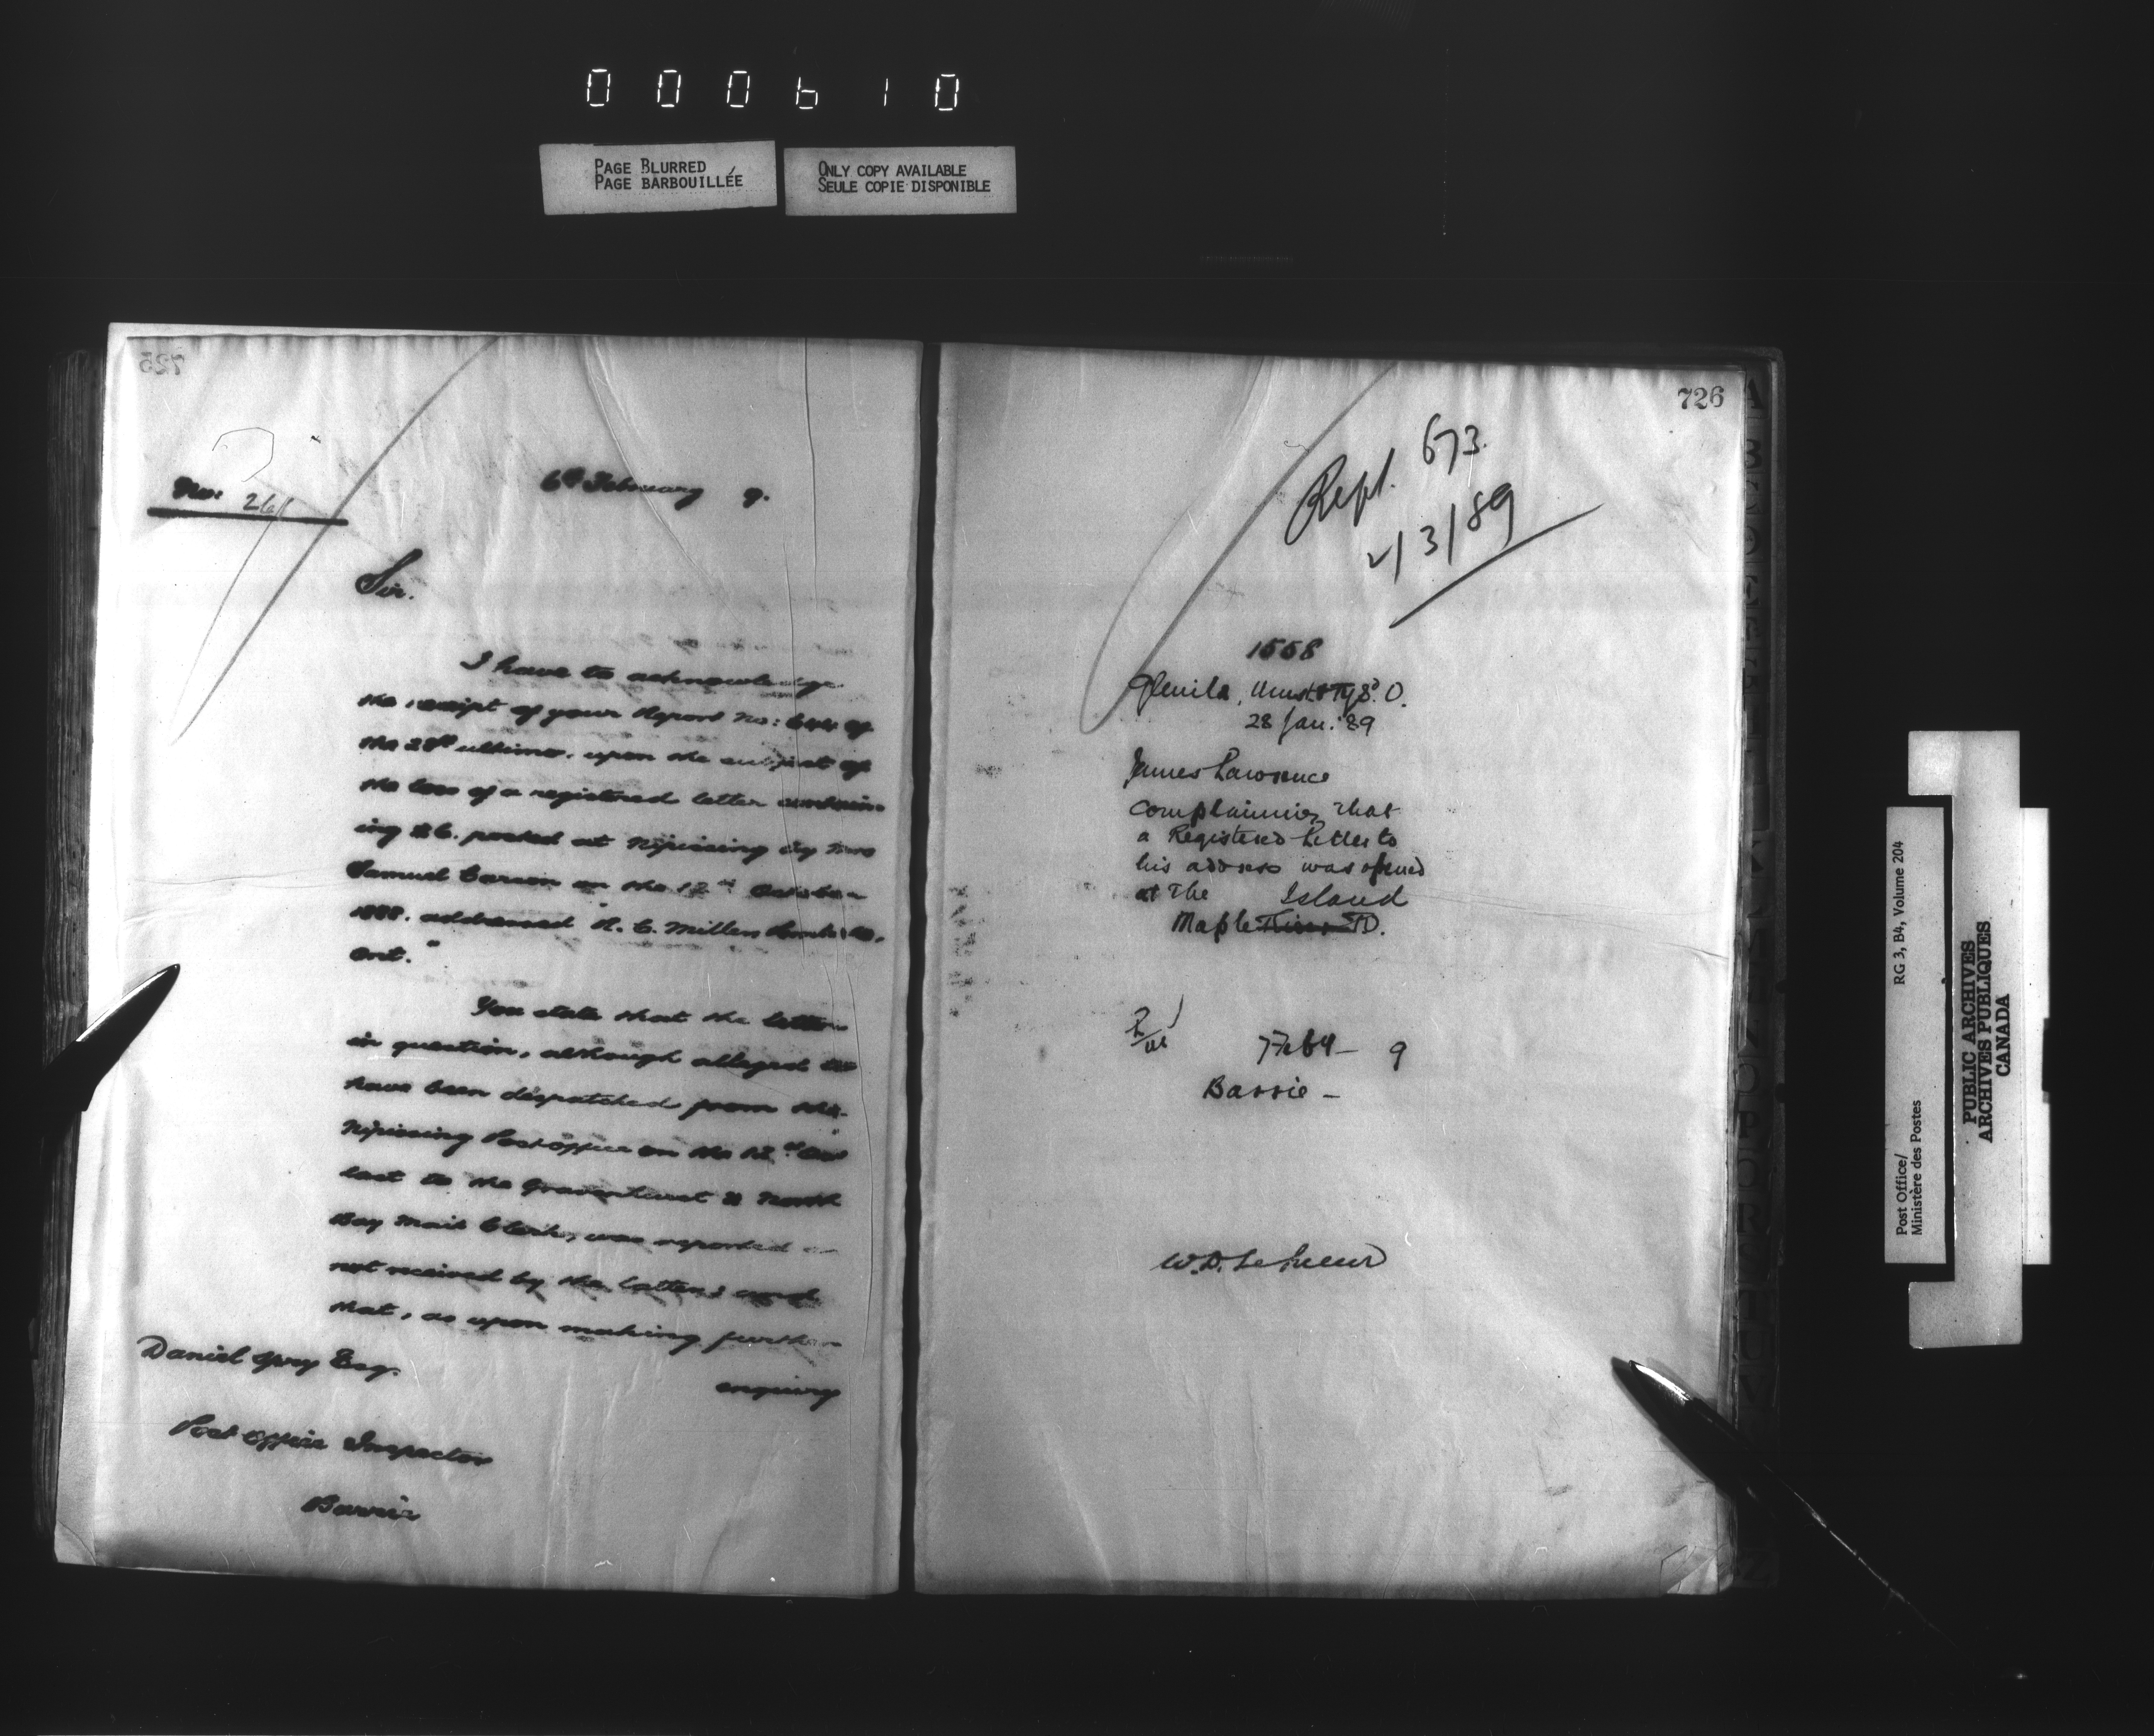 000610
PAGE BLURRED
PAGE BARBOUILLÉE
ONLY COPY AVAILABLE
SEULE COPIE DISPONIBLE
725
No: 261
6th February 9.
Sir.
I have to acknowledge
the receipt of your Report No: 644 of
the 28th ultimo, upon the subject of
the loss of a registered letter contain-
ing $6. posted at Nipissing by
Samuel Carson on the 12th October
1888. addressed R. C. Miller
Ont."
You state that the letter
in question, although alleged to
have been dispatched from the
Nipissing Post office on the 12th
last to the Gravenhurst & North
Bay Mail Clerk, was reported
not received by the latter; and
that, as upon making further
enquiry
Daniel Spry Esq.
Post office Inspector
Barrie
726
Rept. 673.
2/3/89
1558
28 Jan: 89
James Lawrence
complaining that
a Registered Letter to
his address was opened
at the Island
Maple P.O.
7 Feby - 9
Barrie -
W. D. LeSueur
RG 3, B4, Volume 204
Post Office/
Ministère des Postes
PUBLIC ARCHIVES
ARCHIVES PUBLIQUES
CANADA